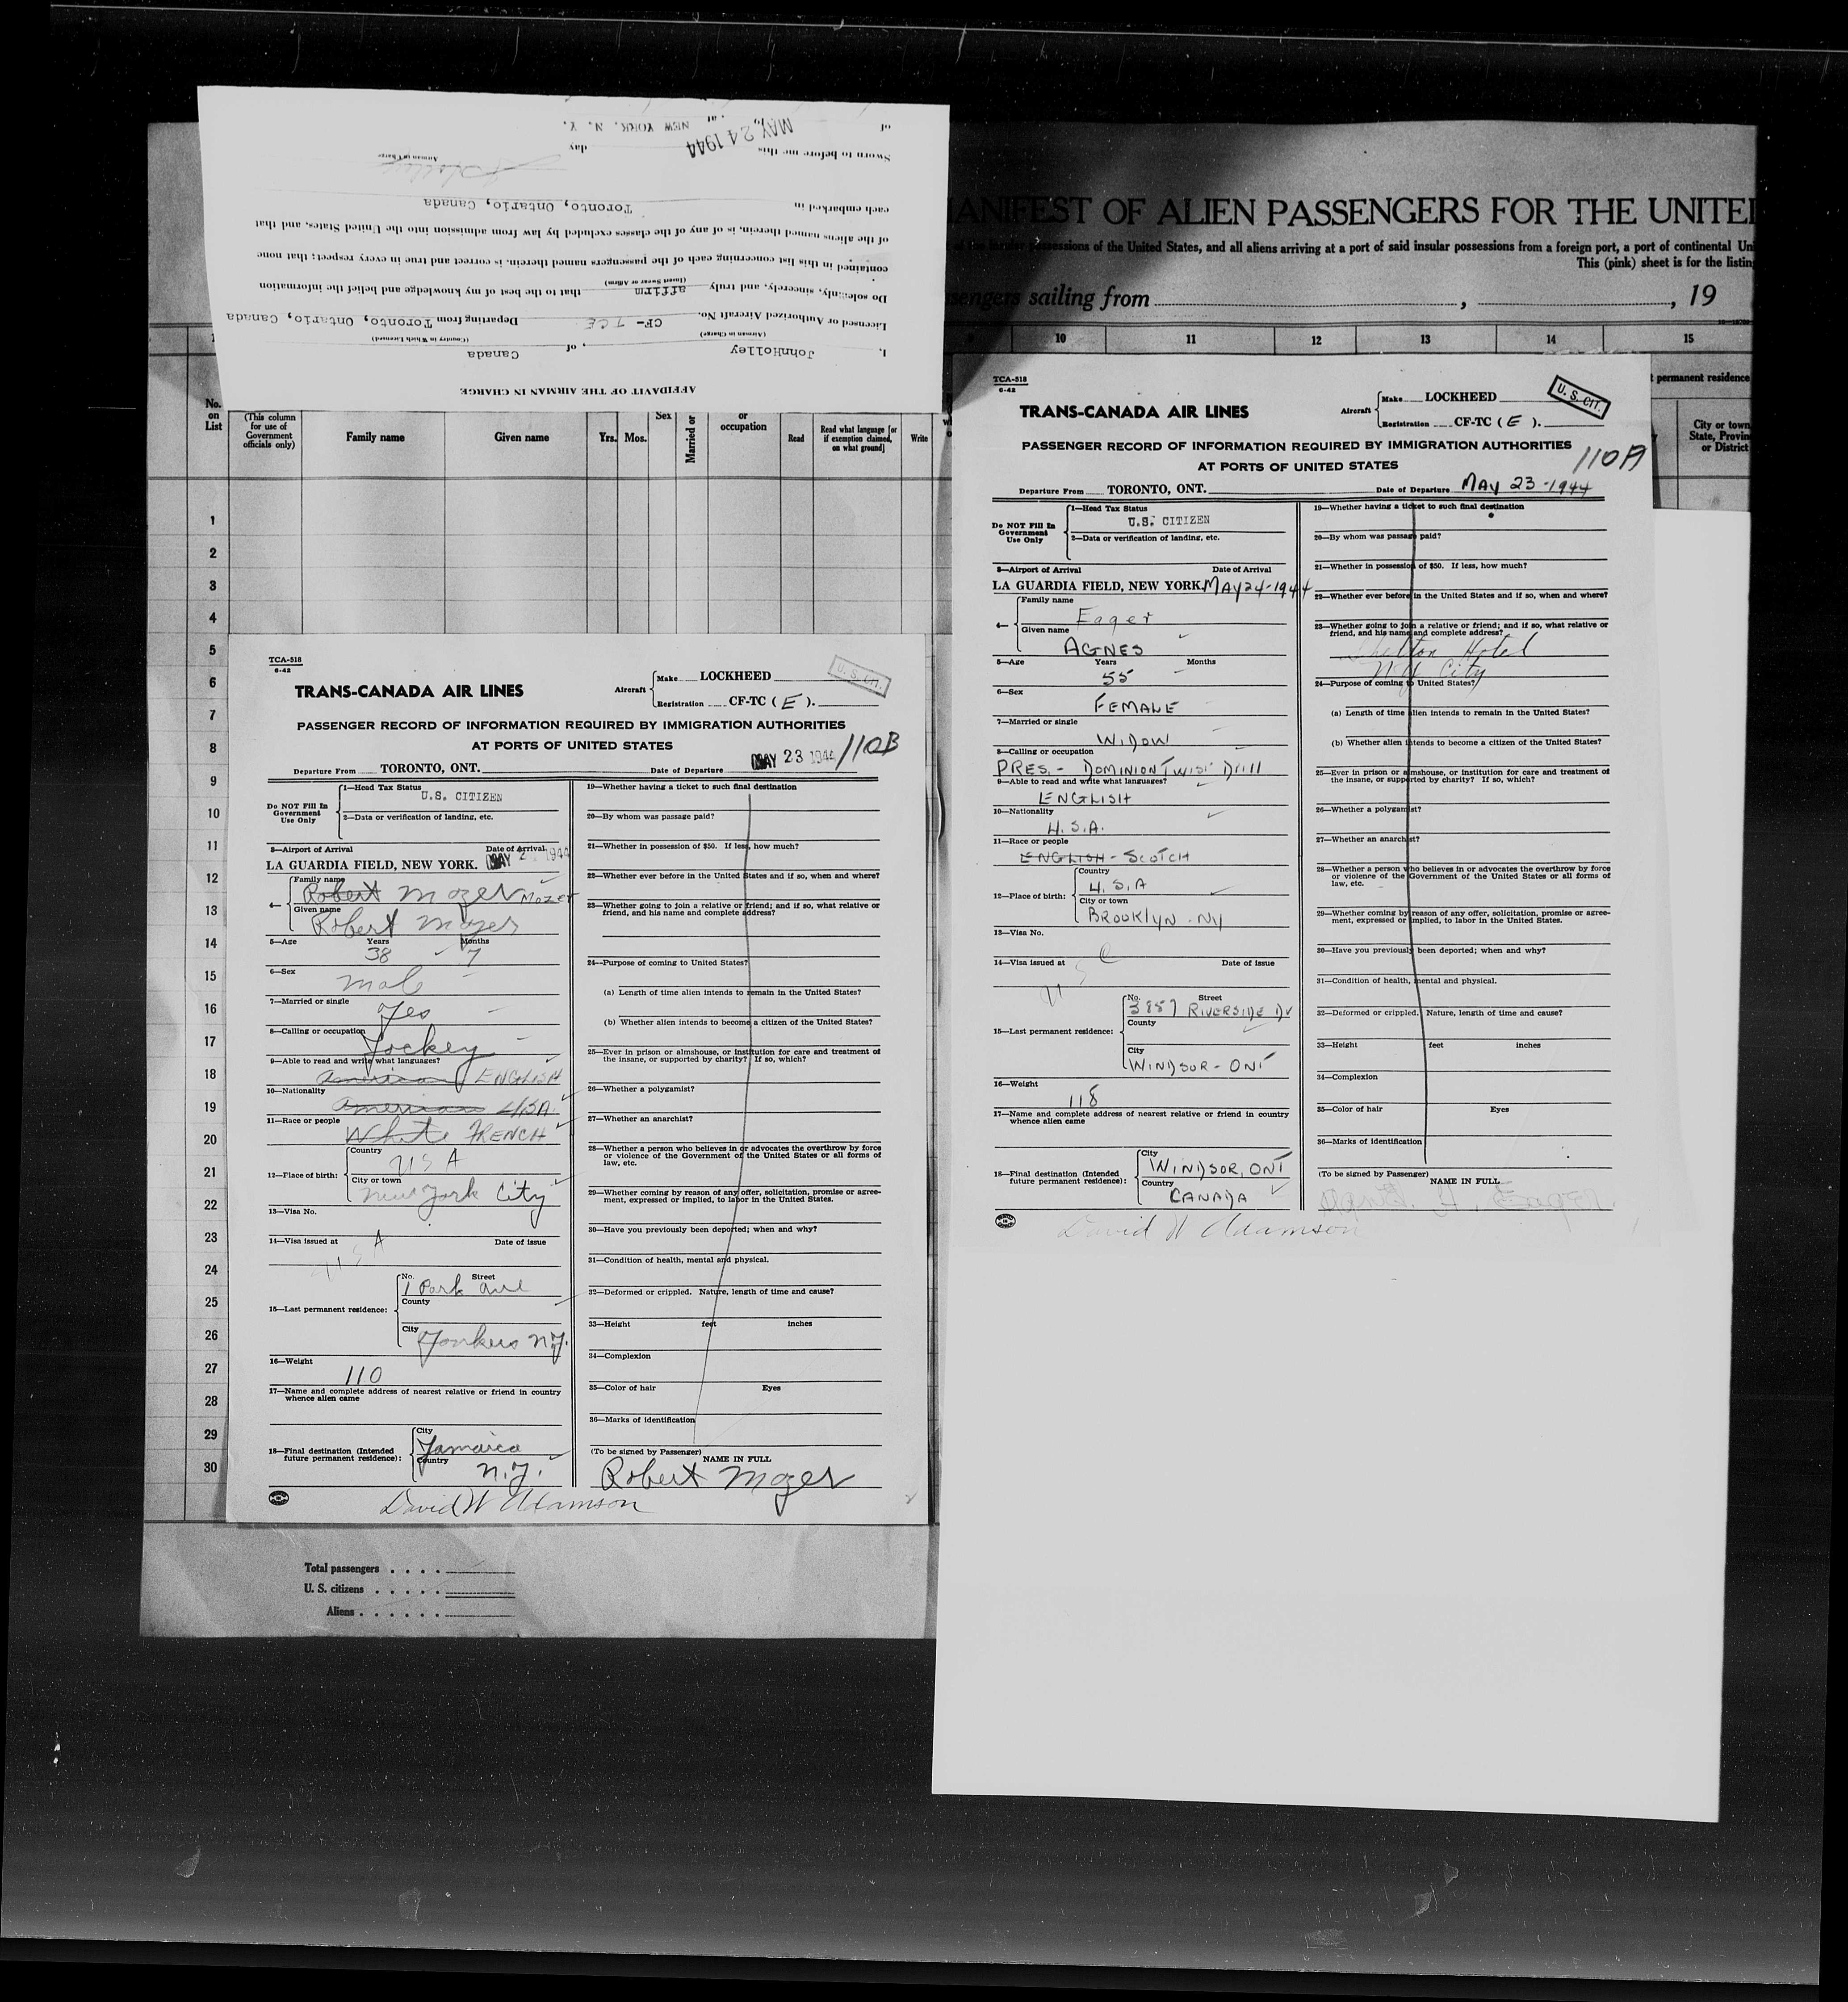 AFFIDAVIT OF THE AIRMAN IN CHARGE
I, JohnHolley, of Canada
(Airman in Charge) (Country in Which Licensed)
Licensed or Authorized Aircraft No. CF- TCE Departing from Toronto, Ontario, Canada
Do solemnly, sincerely, and truly affirm that to the best of my knowledge and belief the information
(Insert Swear or Affirm)
contained in this list concerning each of the passengers named therein, is correct and true in every respect; that none
of the aliens named therein, is of any of the classes excluded by law from admission into the United States, and that
each embarked in Toronto, Ontario, Canada
Airman in Charge
Sworn to before me this MAY 24 1944 day
of , at NEW YORK, N. Y.
ANIFEST OF ALIEN PASSENGERS FOR THE UNITE
possessions of the United States, and all aliens arriving at a port of said insular possessions from a foreign port, a port of continental Un
This (pink) sheet is for the listin
sengers sailing from , , 19
10 11 12 13 14 15
permanent residence
City or town
State, Provin
or District
No.
on
List
(This column
for use of
Government
officials only)
Family name
Given name
Yrs. Mos.
Sex
Married or
or
occupation
Read
Read what language [or
if exemption claimed,
on what ground]
Write
1
2
3
4
5
6
7
8
9
10
11
12
13
14
15
16
17
18
19
20
21
22
23
24
25
26
27
28
29
30
TCA-518
6-42
TRANS-CANADA AIR LINES
Aircraft Make LOCKHEED
Registration CF-TC ( E ).
U.S. CIT.
PASSENGER RECORD OF INFORMATION REQUIRED BY IMMIGRATION AUTHORITIES
AT PORTS OF UNITED STATES
110B
Departure From TORONTO, ONT. Date of Departure MAY 23 1944
Do NOT Fill In
Government
Use Only
1—Head Tax Status
U.S. CITIZEN
2—Data or verification of landing, etc.
3—Airport of Arrival Date of Arrival
LA GUARDIA FIELD, NEW YORK. MAY 2 1944
4— Family name
Robert Mozer Mozer
Given name
Robert Mozer
5—Age Years Months
38 7
6—Sex
Male
7—Married or single
Yes
8—Calling or occupation
Jockey
9—Able to read and write what languages?
American ENGLISH
10—Nationality
American USA.
11—Race or people
White FRENCH
12—Place of birth: Country
USA
City or town
New York City
13—Visa No.
14—Visa issued at Date of issue
USA
15—Last permanent residence: No. Street
1 Park Ave
County
City
Yonkers N.Y.
16—Weight
110
17—Name and complete address of nearest relative or friend in country
whence alien came
18—Final destination (Intended
future permanent residence):
City
Jamaica
Country
N.Y.
19—Whether having a ticket to such final destination
20—By whom was passage paid?
21—Whether in possession of $50. If less, how much?
22—Whether ever before in the United States and if so, when and where?
23—Whether going to join a relative or friend; and if so, what relative or
friend, and his name and complete address?
24—Purpose of coming to United States?
(a) Length of time alien intends to remain in the United States?
(b) Whether alien intends to become a citizen of the United States?
25—Ever in prison or almshouse, or institution for care and treatment of
the insane, or supported by charity? If so, which?
26—Whether a polygamist?
27—Whether an anarchist?
28—Whether a person who believes in or advocates the overthrow by force
or violence of the Government of the United States or all forms of
law, etc.
29—Whether coming by reason of any offer, solicitation, promise or agree-
ment, expressed or implied, to labor in the United States.
30—Have you previously been deported; when and why?
31—Condition of health, mental and physical.
32—Deformed or crippled. Nature, length of time and cause?
33—Height feet inches
34—Complexion
35—Color of hair Eyes
36—Marks of identification
(To be signed by Passenger)
NAME IN FULL
Robert Mozer
David W Adamson
Total passengers
U. S. citizens
Aliens
TCA-518
6-42
TRANS-CANADA AIR LINES
Aircraft Make LOCKHEED
Registration CF-TC ( E ).
U.S. CIT.
PASSENGER RECORD OF INFORMATION REQUIRED BY IMMIGRATION AUTHORITIES
AT PORTS OF UNITED STATES
110A
Departure From TORONTO, ONT. Date of Departure MAY 23-1944
Do NOT Fill In
Government
Use Only
1—Head Tax Status
U.S. CITIZEN
2—Data or verification of landing, etc.
3—Airport of Arrival Date of Arrival
LA GUARDIA FIELD, NEW YORK. MAY 24-1944
4— Family name
Eager
Given name
AGNES
5—Age Years Months
55
6—Sex
FEMALE
7—Married or single
WIDOW
8—Calling or occupation
PRES. - DOMINION TWIST DRILL
9—Able to read and write what languages?
ENGLISH
10—Nationality
U.S.A.
11—Race or people
ENGLISH - SCOTCH
12—Place of birth: Country
U.S.A
City or town
BROOKLYN - NY
13—Visa No.
14—Visa issued at Date of issue
15—Last permanent residence: No. Street
3857 RIVERSIDE DV
County
City
WINDSOR - ONT
16—Weight
118
17—Name and complete address of nearest relative or friend in country
whence alien came
18—Final destination (Intended
future permanent residence):
City
WINDSOR, ONT
Country
CANADA
19—Whether having a ticket to such final destination
20—By whom was passage paid?
21—Whether in possession of $50. If less, how much?
22—Whether ever before in the United States and if so, when and where?
23—Whether going to join a relative or friend; and if so, what relative or
friend, and his name and complete address?
Shelton Hotel
NY City
24—Purpose of coming to United States?
(a) Length of time alien intends to remain in the United States?
(b) Whether alien intends to become a citizen of the United States?
25—Ever in prison or almshouse, or institution for care and treatment of
the insane, or supported by charity? If so, which?
26—Whether a polygamist?
27—Whether an anarchist?
28—Whether a person who believes in or advocates the overthrow by force
or violence of the Government of the United States or all forms of
law, etc.
29—Whether coming by reason of any offer, solicitation, promise or agree-
ment, expressed or implied, to labor in the United States.
30—Have you previously been deported; when and why?
31—Condition of health, mental and physical.
32—Deformed or crippled. Nature, length of time and cause?
33—Height feet inches
34—Complexion
35—Color of hair Eyes
36—Marks of identification
(To be signed by Passenger)
NAME IN FULL
Agnes. H. Eager
David W Adamson